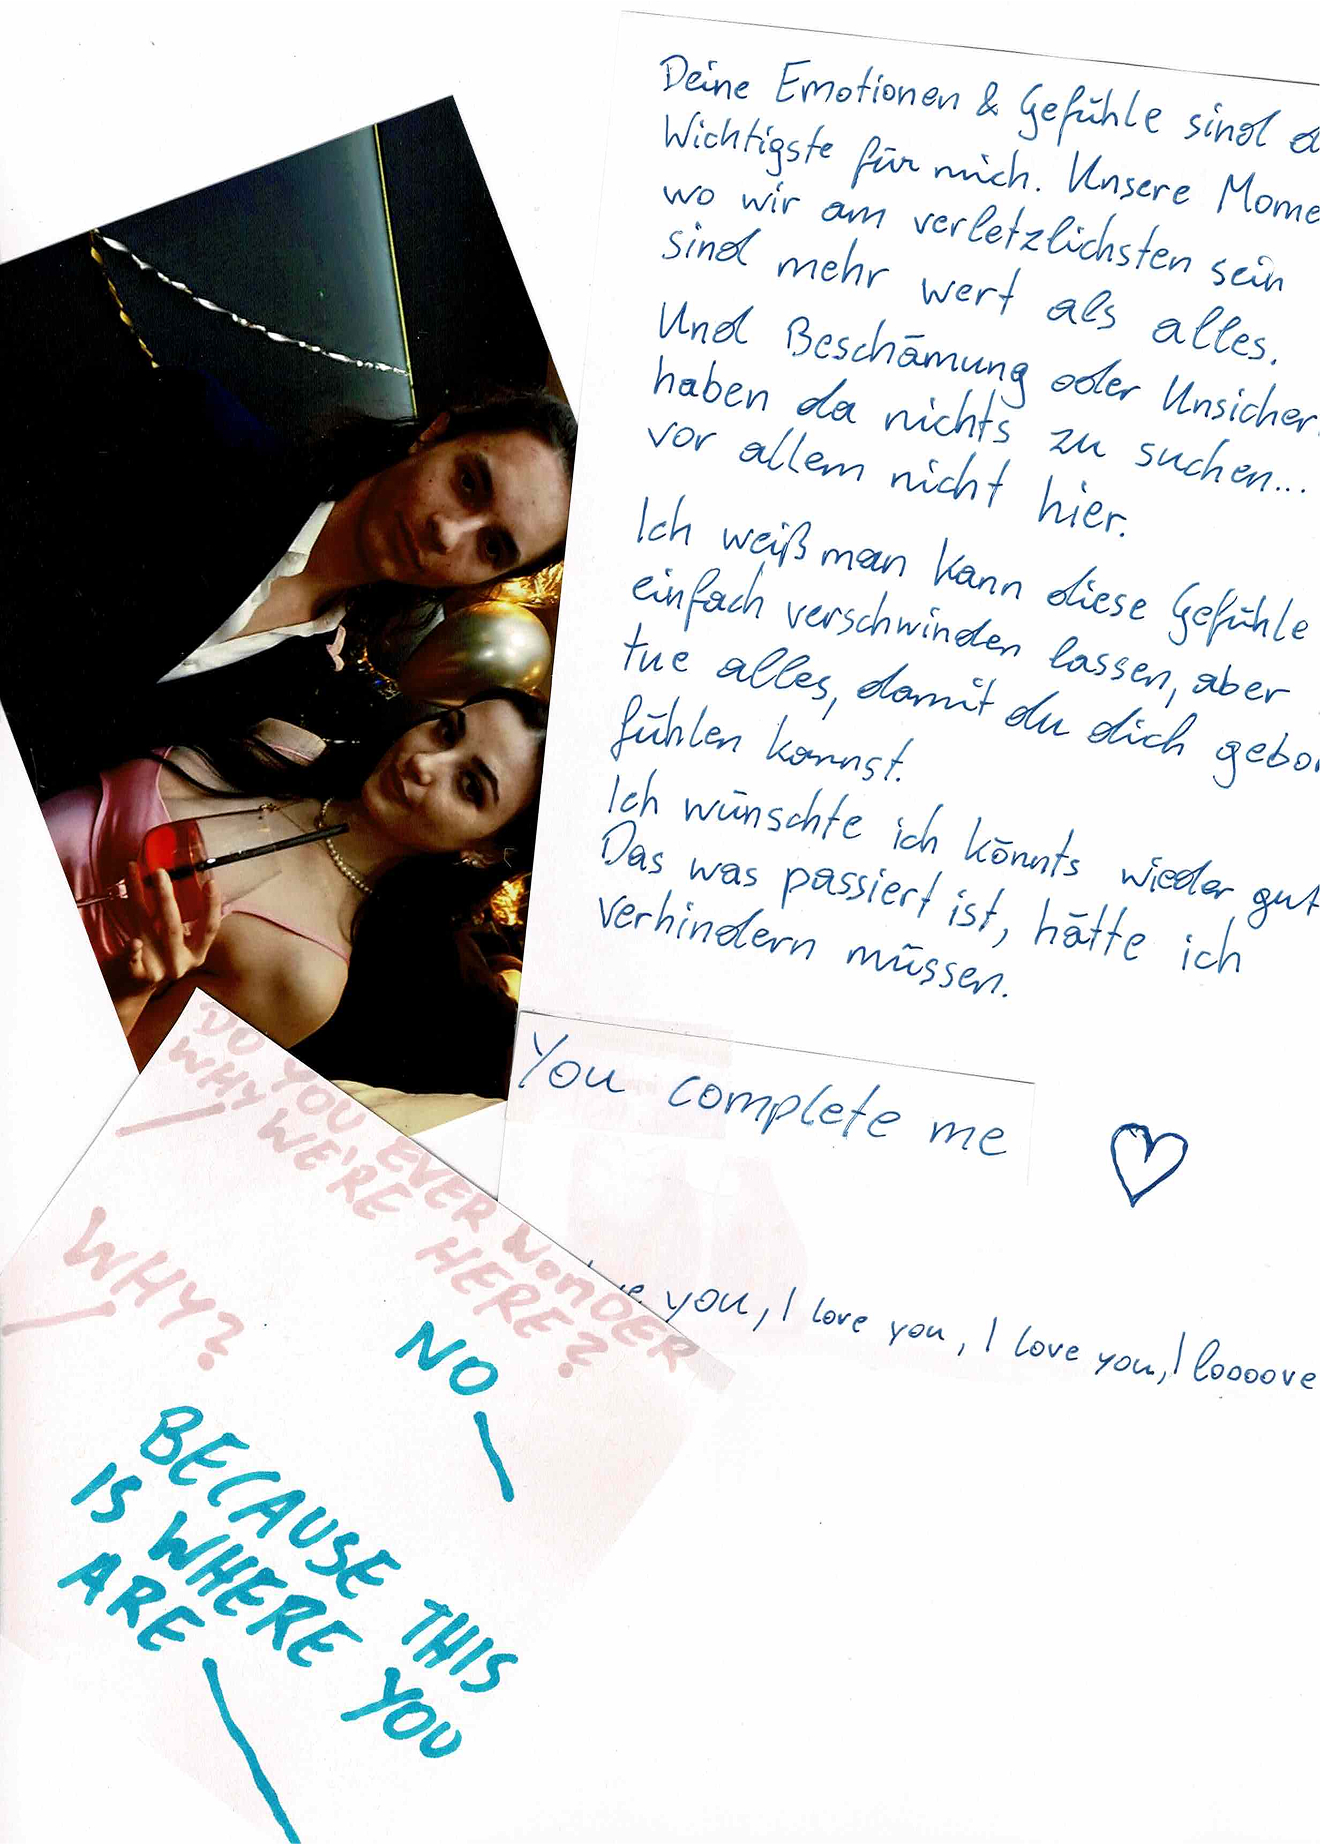 Deine Emotionen & Gefühle sind
Wichtigste für mich. Unsere
wo wir am verletzlichsten sein
sind mehr wert als alles.
Und Beschämung oder
haben da nichts zu suchen...
vor allem nicht hier.
Ich weiß man kann diese Gefühle
einfach verschwinden lassen, aber
tue alles, damit du dich
fühlen kannst.
Ich wünschte ich könnts wieder gut
Das was passiert ist, hätte ich
verhindern müssen.
You complete me
you, I love you, I love you, I loooove
DO YOU EVER WONDER
WHY WE'RE HERE?
NO
WHY?
BECAUSE THIS
IS WHERE YOU
ARE